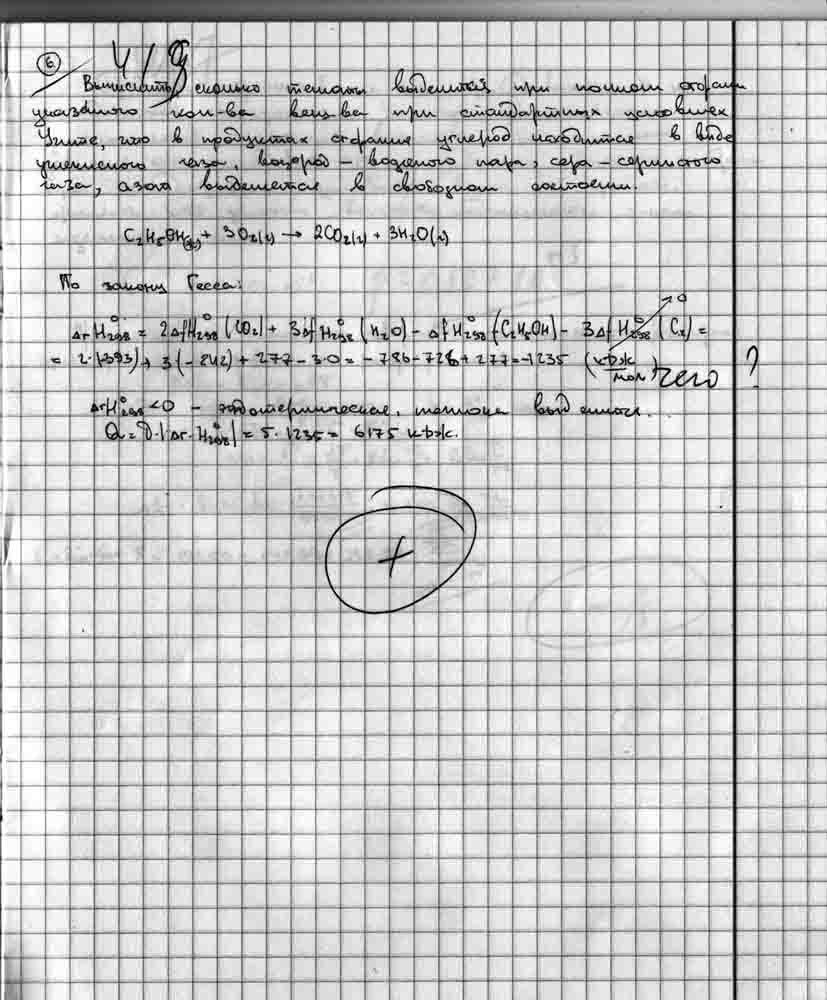 6
4/9
Вычислить, сколько теплоты выделится при полном сгорании
указанного кол-ва вещ-ва при стандартных условиях
Учтите, что в продуктах сгорания углерод находится в виде
углекислого газа, водород – водяного пара, сера – сернистого
газа, азот выделяется в свободном состоянии.
C₂H₅OH(ж) + 3O₂(г) → 2CO₂(г) + 3H₂O(г)
По закону Гесса:
0
ΔrH°₂₉₈ = 2ΔfH°₂₉₈(CO₂) + 3ΔfH°₂₉₈(H₂O) – ΔfH°₂₉₈(C₂H₅OH) – 3ΔfH°₂₉₈(C₂) =
= 2·(393) + 3(-242) + 277 – 3·0 = -786-726+277=-1235 (кДж/мол) чего ?
ΔrH°₂₉₈<0 – эндотермическая, теплота выделилась.
Q = ν·|Δr·H°₂₉₈| = 5·1235 = 6175 кДж.
+